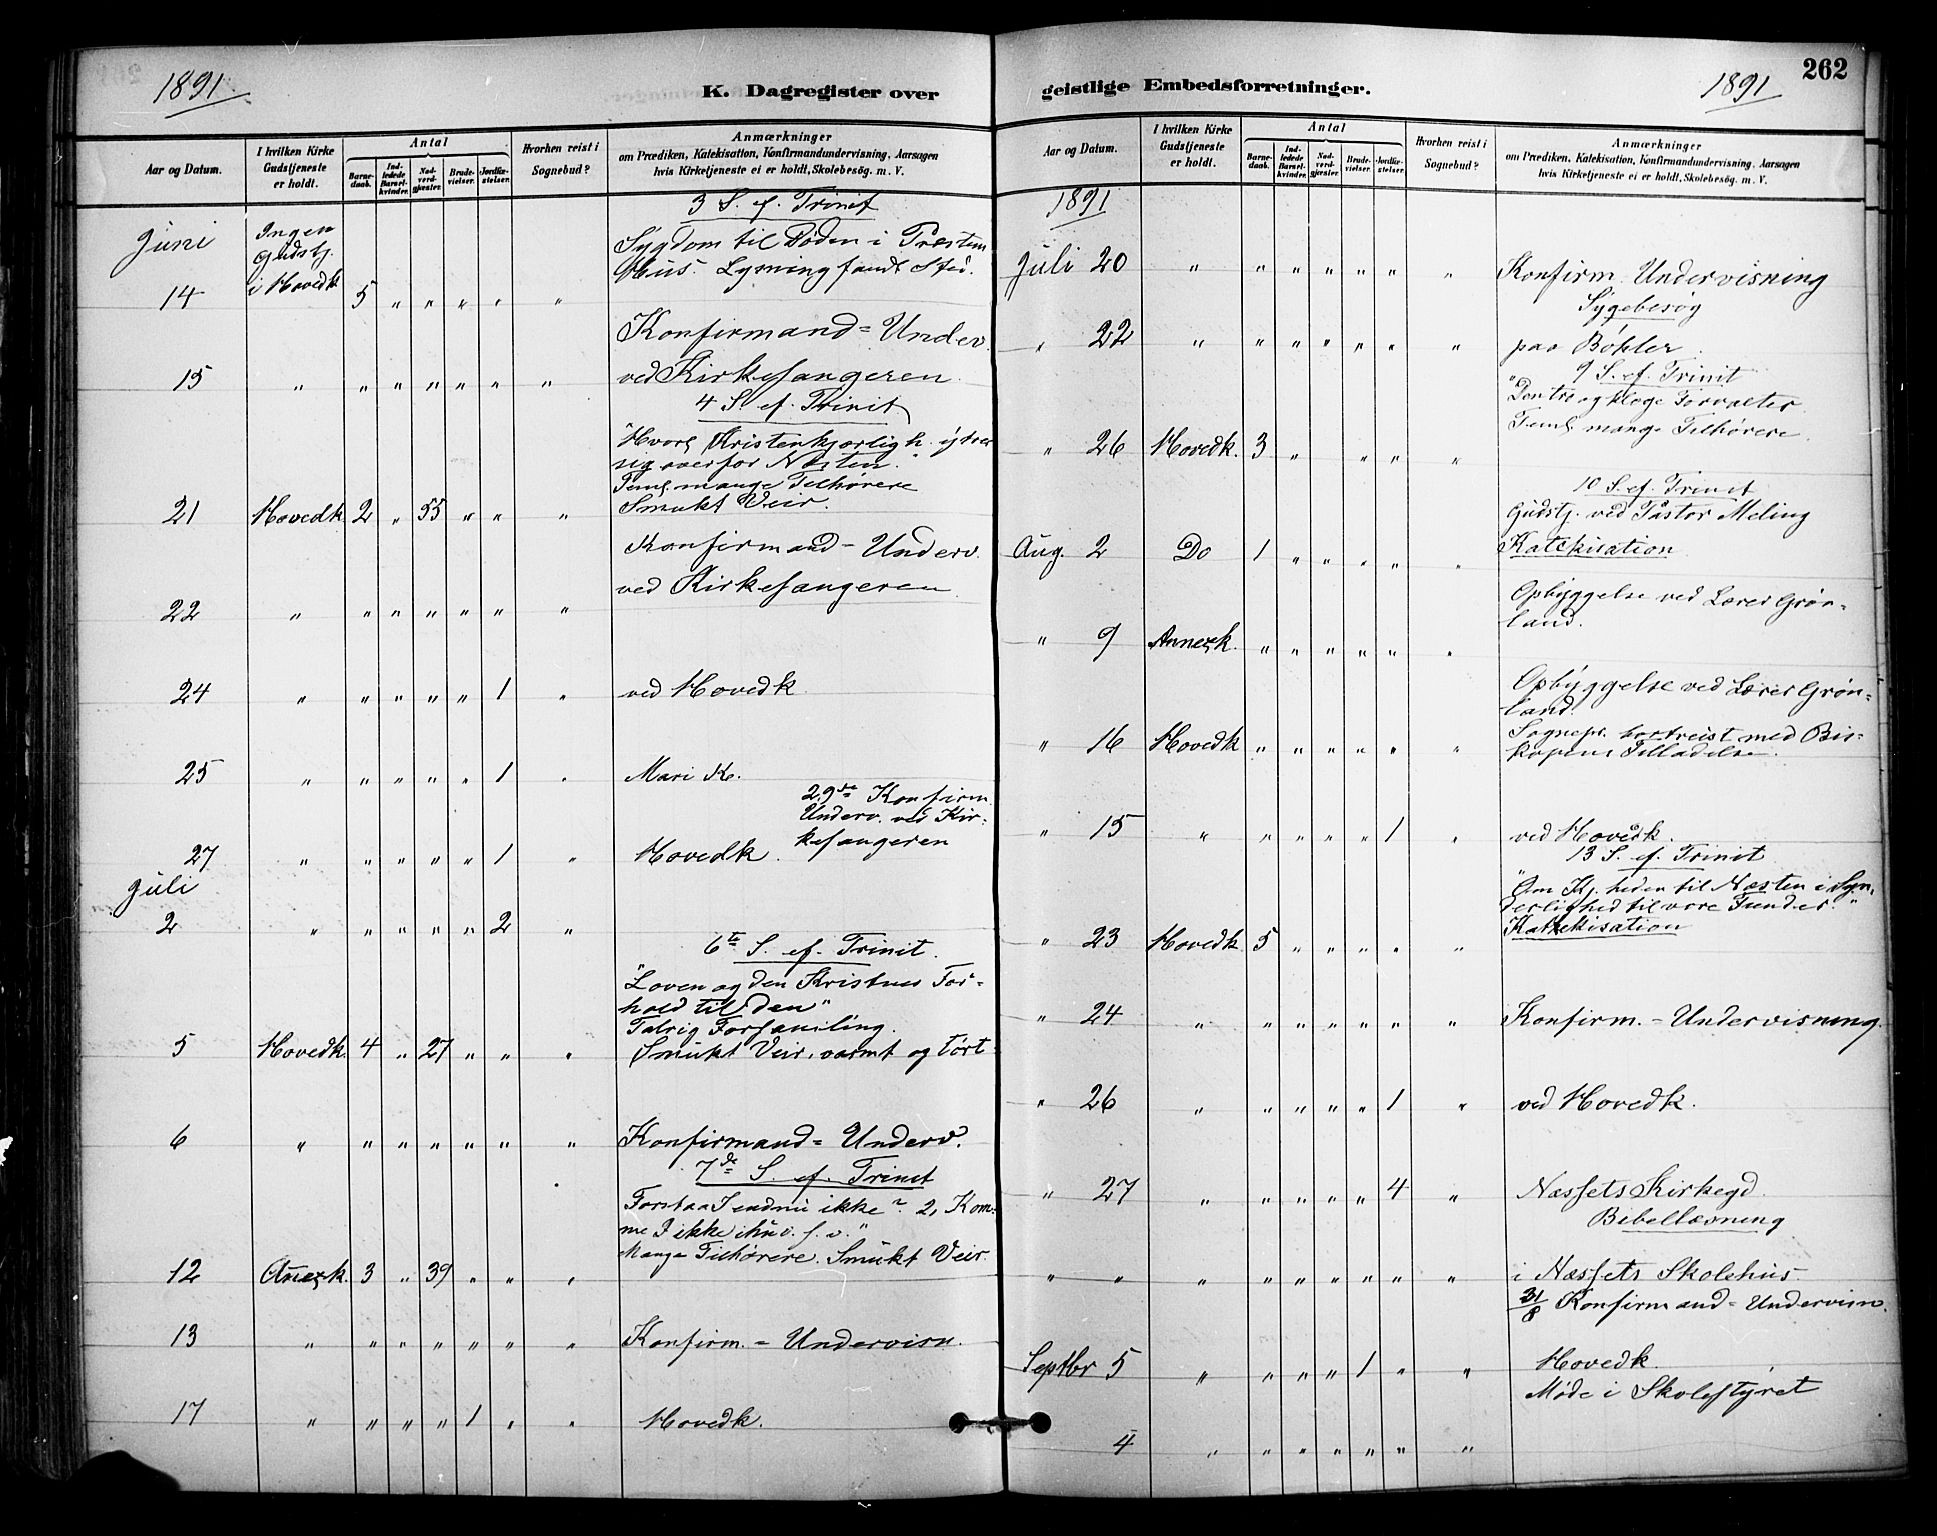 1891
K. Dagregister over
Aar og Datum.
I hvilken Kirke Gudstjeneste er holdt.
Antal
Barnedaab.
Indledede Barselkvinder.
Nadverdgjæster.
Brudevielser.
Jordfæstelser.
Hvorhen reist i Sognebud?
Anmærkninger
om Prædiken, Katekisation, Konfirmandundervisning, Aarsagen
hvis Kirketjeneste ei er holdt, Skolebesøg. m. V.
3 S. ef. Trinit
Juni
Ingen
Gudstj.
Sygdom til Døden i Præsten
Hus. Lysning fandt Sted.
14 i Hovedk 5 " " " " "
Konfirmand= Underv.
15 " " " " " " " ved Kirkesangeren
4 S. ef. Trinit
"Hvorl. Kristenkjærligh. ytrer
sig overfor Næsten."
Teml. mange Tilhørere
21 Hovedk. 2 " 55 " " " Smukt Veir.
Konfirmand- Underv.
ved Kirkesangeren
22 " " " " " " "
24 " " " " " 1 " ved Hovedk.
25 " " " " " 1 " Mari K.
29de Konfirm.
Underv. ved Kir-
kesangeren
27 " " " " " 1 " Hovedk.
Juli
2 " " " " " 2 "
6te S. ef. Trinit.
"Loven og den Kristnes For=
hold til den"
Talrig Forsamling.
5 Hovedk. 4 " 27 " " " Smukt Veir, varmt og tørt
6 " " " " " " " Konfirmand= Underv.
7de S. ef. Trinit
Forstaa I endnu ikke? 2, Kom=
me I ikke ihu o. s. v."
Mange Tilhørere. Smukt Veir.
12 Anexk. 3 " 39 " " "
13 " " " " " " " Konfirm.= Undervisn.
17 " " " " 1 " " Hovedk.
geistlige Embedsforretninger.
1891
262
Aar og Datum.
I hvilken Kirke Gudstjeneste er holdt.
Antal
Barnedaab.
Indledede Barselkvinder.
Nadverdgjæster.
Brudevielser.
Jordfæstelser.
Hvorhen reist i Sognebud?
Anmærkninger
om Prædiken, Katekisation, Konfirmandundervisning, Aarsagen
hvis Kirketjeneste ei er holdt, Skolebesøg. m. V.
1891
Juli 20 " " " " " " " Konfirm. Undervisning
Sygebesøg
" 22 " " " " " " " paa Bøhler
9 S. ef. Trinit
"Den tro og kloge Forvalter
Teml. mange Tilhørere.
" 26 Hovedk. 3 " " " "
10 S. ef. Trinit
Gudstj. ved Pastor Meling
Aug. 2 Do 1 " " " " " Katekisation
Opbyggelse ved Lærer Grøn-
land.
" 9 Annexk. " " " " " "
Opbyggelse ved Lærer Grøn-
land.
" 16 Hovedk " " " " " " Sognepr. bortreist med Bis-
kopens Tilladelse.
" 15 " " " " " 1 " ved Hovedk.
13 S. ef. Trinit
"Om Kj.heden til Næsten i Syn-
derlighed til vore Fiender."
" 23 Hovedk 5 " " " " " Kathekisation
" 24 " " " " " " " Konfirm.- Undervisning.
" 26 " " " " " 1 " ved Hovedk.
" 27 " " " " " 4 " Næssets Kirkegd.
Bibellæsning
" " " " " " " " " i Næssets Skolehus.
31/8 Konfirmand= Undervisn.
Septbr 5 " " " " 1 " " Hovedk.
Møde i Skolestyret
4 " " " " " " "